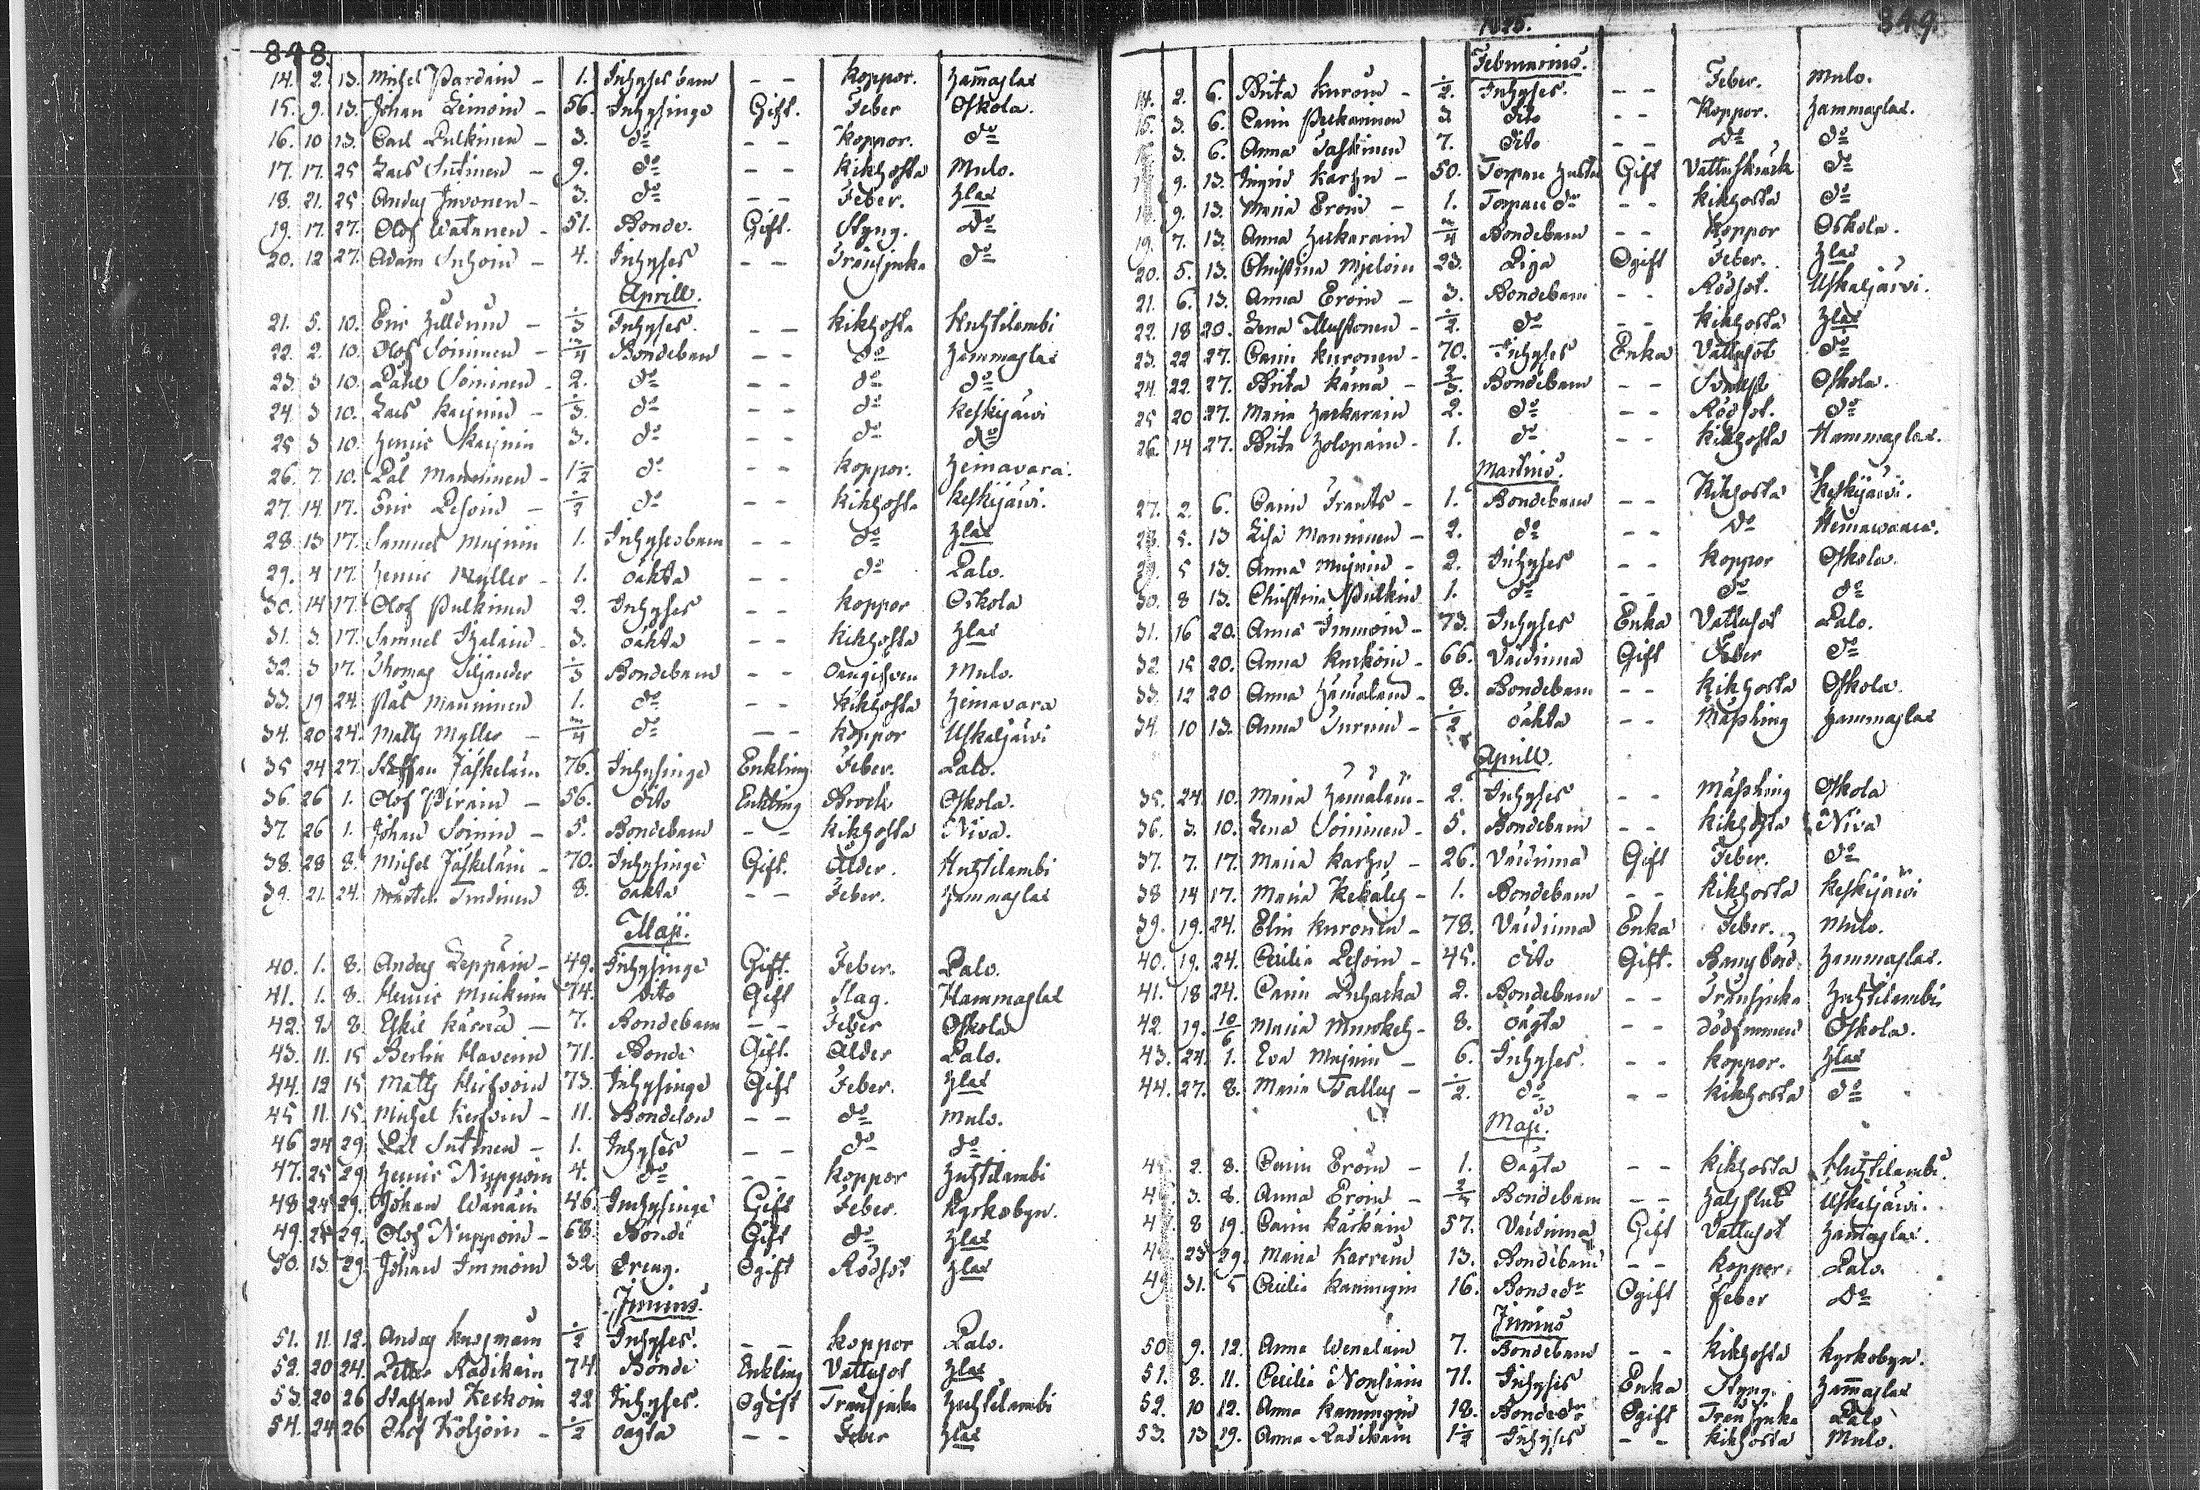 848.
14. 2. 13. Michel Pardain - 1. Inhyses barn - - Koppor. Hammaslax
15. 9. 13. Johan Leinoin - 56. Inhysinge Gift. Feber Oskola.
16. 10 13. Carl Pulkinen - 3. do - - Koppor. do
17. 17. 25 Lars Sutinen - 9. do - - Kikhosta Mulo.
18. 21. 25 Anders Invonen - 3. do - - Feber. Hlax
19. 17. 27. Olof Watanen - 51. Bonde. Gift. Styng. do
20. 12 27. Adam Inhoin - 4. Inhyses - - Transjuka do
Aprill.
21. 5. 10. Eric Hilldund - 1/3 Inhyses. - - Kikhosta Huhtilambi
22. 2. 10. Olof Soininen - 1/4 Bondebarn - - do Hammaslax
23. 3 10. Påhl Soininen - 2. do - - do do
24. 3 10. Lars Kaijnin - 1/3. do - - do Keskijärvi
25 3 10. Henric Kaijnin 3. do - - do do
26. 7. 10. Pål Manninen - 1 1/2 do - - Koppor. Heinavara.
27. 14. 17. Eric Lesoin - 1/2 do - - Kikhosta Keskijärvi.
28. 13 17. Samuel Muinin 1. Inhysesbarn - - do Hlax
29. 4 17. Henric Myller - 1. oäkta - - do Palo.
30. 14 17. Olof Pulkinen 2. Inhyses - - Koppor Oskola
31. 3. 17. Samuel Ihalain - 3. oäkta - - Kikhosta Hlax
32. 3 17. Thomas Siljander 1/3 Bondebarn - - Mulo.
33. 19 24. Pål Manninen 1. do - - Kikhosta Heinavara
34. 20 24. Matts Myller - 1/4 do - - Koppor Uskaljärvi
35 24 27. Staffan Jäskeläin 76. Inhysinge Enkling Feber. Palo.
36. 26 1. Olof Piräin - 56. dito Enkling Brock Oskola.
37. 26 1. Johan Soinin - 5. Bondebarn - - Kikhosta Niva.
38. 28 8. Michel Jäskeläin - 70. Inhysinge Gift. Ålder. Huhtilambi
39. 21. 24. Mårten Turdinen 8. oäkta - - Feber. Hammaslax
Maji.
40. 1. 8. Anders Leppäin - 49. Inhysinge Gift. Feber. Palo.
41. 1. 8. Henric Mickinin 74. dito Gift Slag. Hammaslax
42. 2. 8. Eskil Kärnä - 7. Bondebarn - - Feber Oskola
43. 11. 15 Bertin Havenin 71. Bonde Gift. Ålder Palo.
44. 12 15 Matts Hirfvoin 73. Inhysinge Gift Feber. Hlax
45 11. 15. Michel Kerfvin - 11. Bondeson - - do Mulo.
46 24 29. Pål Sutinen - 1. Inhyses - - do do
47. 25 29. Henric Nuppoin 4. do - - Koppor Huhtilambi
48 24 29. Johan Wänäin 46. Inhysinge Gift Feber. Kyrkobyn.
49. 25 29. Olof Nuppoin - 68. Bonde Gift do Hlax
50. 13. 29. Johan Immoin 32 Dreng. Ogift Rödsot Hlax
Junius.
51. 11. 12. Anders Kusmäin 1/2 Inhyses. - - Koppor Palo.
52. 20 24. Petter Radikain 74. Bonde Enkling Vattusot Hlax
53. 20 26 Staffan Keckoin 22 Inhyses. Ogift Transjuka Huhtilambi
54. 24 26 Olof Koljoin - 1/2 oägta - - Feber Hlax
1825. 849.
Februarius.
14. 2. 6. Brita Kuroin - 1/2. Inhyses. - - Feber. Mulo.
15. 3. 6. Carin Pukarinen 3. dito - - Koppor. Hammaslax.
3. 6. Anna Taskinen 7. dito - - do do
9. 13. Ingrid Karhu - 50. Torpare hustru Gift do
9. 13. Maria Eroin - 1. Torpare dr - - Kikhosta do
19. 7. 13. Anna Hackarain 1/4 Bondebarn - - Koppor Oskola.
20. 5. 13. Christina Mieloin 23. Piga Ogift Feber. Hlax
21. 6. 13. Anna Eroin - 3. Bondebarn - - Rödsot. Uskaljärvi.
22. 18 20. Lena Mustonen - 1/2. do - - Kikhosta Hlax
23. 22 27. Carin Kuronen - 70. Inhyses Enka Vattusot do
24. 22. 27. Brita Kärnä - 2/3. Bondebarn - - Oskola.
25 20 27. Maria Hackarain 2. do - - Rödsot. do
26. 14 27. Brita Holopain - 1. do - - Kikhosta Hammaslax.
Martius.
27. 2. 6. Carin Frants - 1. Bondebarn - - Kikhosta Keskijärvi.
5. 13 Lisa Manninen - 2. do - - do Heinawaara.
29. 5 13. Anna Muinin - 2. Inhyses - - Koppor Oskola.
30. 8 13. Christina Pulkin 1. do - - do do
31. 16 20. Anna Immoin - 73. Inhyses Enka Vattusot Palo.
32. 15 20. Anna Kurkoin - 66. Värdinna Gift Feber do
33. 12 20 Anna Hämäläin - 8. Bondebarn - - Kikhosta Oskola.
34. 10 13. Anna Turuin - 1/2 oäkta - - Mäsling Hammaslax
Aprill.
35. 24. 10. Maria Hämäläin - 2. Inhyses - - Mäsling Oskola
36. 3. 10. Lena Soininen - 5. Bondebarn - - Kikhosta Niva
37. 7. 17. Maria Karhu - 26. Värdinna Gift Feber. do
38 14 17. Maria Kekäles - 1. Bondebarn - - Kikhosta Keskijärvi
39. 19. 24. Elin Kuronen - 78. Värdinna Enka Feber. Mulo.
40. 19. 24. Cecilia Lesoin - 45. dito Gift. Barnsbörd Hammaslax.
41. 18 24. Carin Puhacka 2. Bondebarn - - Transjuka Huhtilambi
42. 19. 10/6 Maria Murokes - 8. oägta - - Oskola.
43. 24. 1. Eva Muinin - 6. Inhyses. - - Koppor. Hlax
44. 27. 8. Maria Talley - 1/2. do - - Kikhosta do
Maji.
2. 8. Carin Eroin - 1. oägta - - Kikhosta Huhtilambi.
3. 8. Anna Eroin - Bondebarn - - Halsfluss Uskaljärvi.
8 19. Carin Kärkäin 57. Värdinna Gift Vattusot Hammaslax.
25 29. Maria Karrein 13. Bondebarn - - Koppor. Palo.
49 31. 5 Cecilia Kanningin 16. Bonde dr Ogift Feber do
Junius
50. 9. 12. Anna Wenälain 7. Bondebarn - - Kikhosta Kyrkobyn.
51. 8. 11. Cecilia Nousiain 71. Inhyses Enka Styng. Hammaslax
52. 10 12. Anna Kanningin 18. Bonde dr Ogift Transjuka Palo
53. 13 19. Anna Radikain 1 1/2 Inhyses - - Kikhosta Mulo.